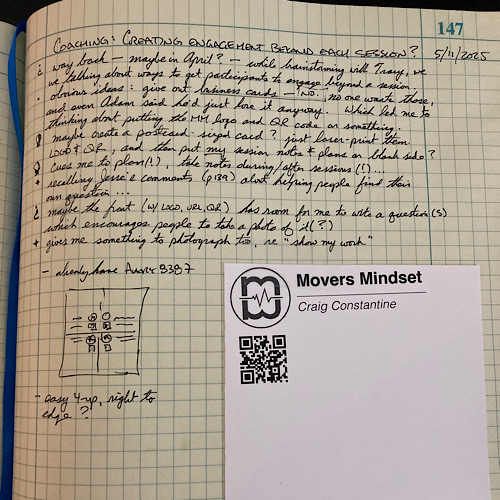 147
COACHING: CREATING ENGAGEMENT BEYOND EACH SESSION? 5/11/2025
¿ way back — maybe in April? — while brainstorming with Tracy, we
talking about ways to get participants to engage beyond a session.
· obvious ideas: give out business cards — NO. no one wants those,
and even Adam said he'd just lose it anyway. Which led me to
thinking about putting the MM logo and QR code on something
maybe create a postcard-sized card? just laser-print them
LOGO & QR, and then put my session notes & plans on blank side?
Cues me to plan(!), take notes during/after sessions(!)...
+ recalling Jesse's comments (p139) about helping people find their
own question...
¿ maybe the front (w/ LOGO, URL, QR) has room for me to write a question(s)
which encourages people to take a photo of it(?)
+ gives me something to photograph too, re "show my work"
— already have Avery 8387
- easy 4-up, right to
edge?
Movers Mindset
Craig Constantine